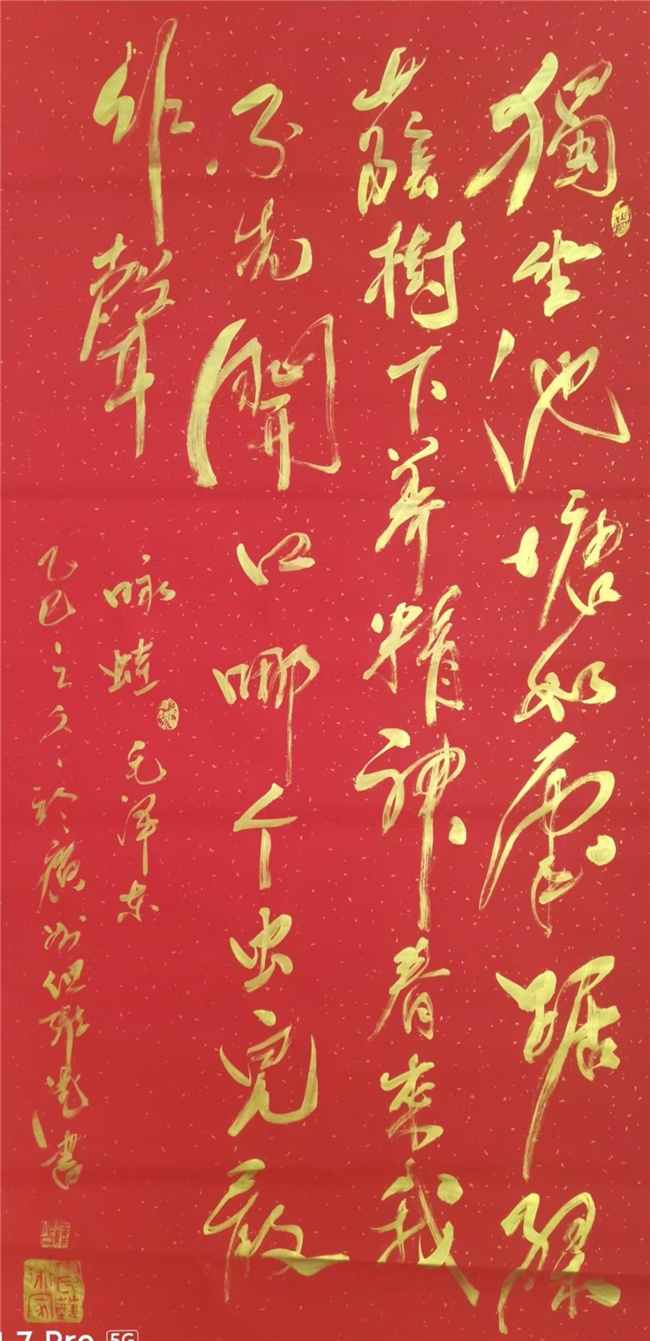 獨坐池塘如虎踞綠
蔭樹下养精神春来我
不先開口哪个虫兒敢
作聲
咏蛙 毛泽东
乙巳之冬於廣州書
7 Pro 5G